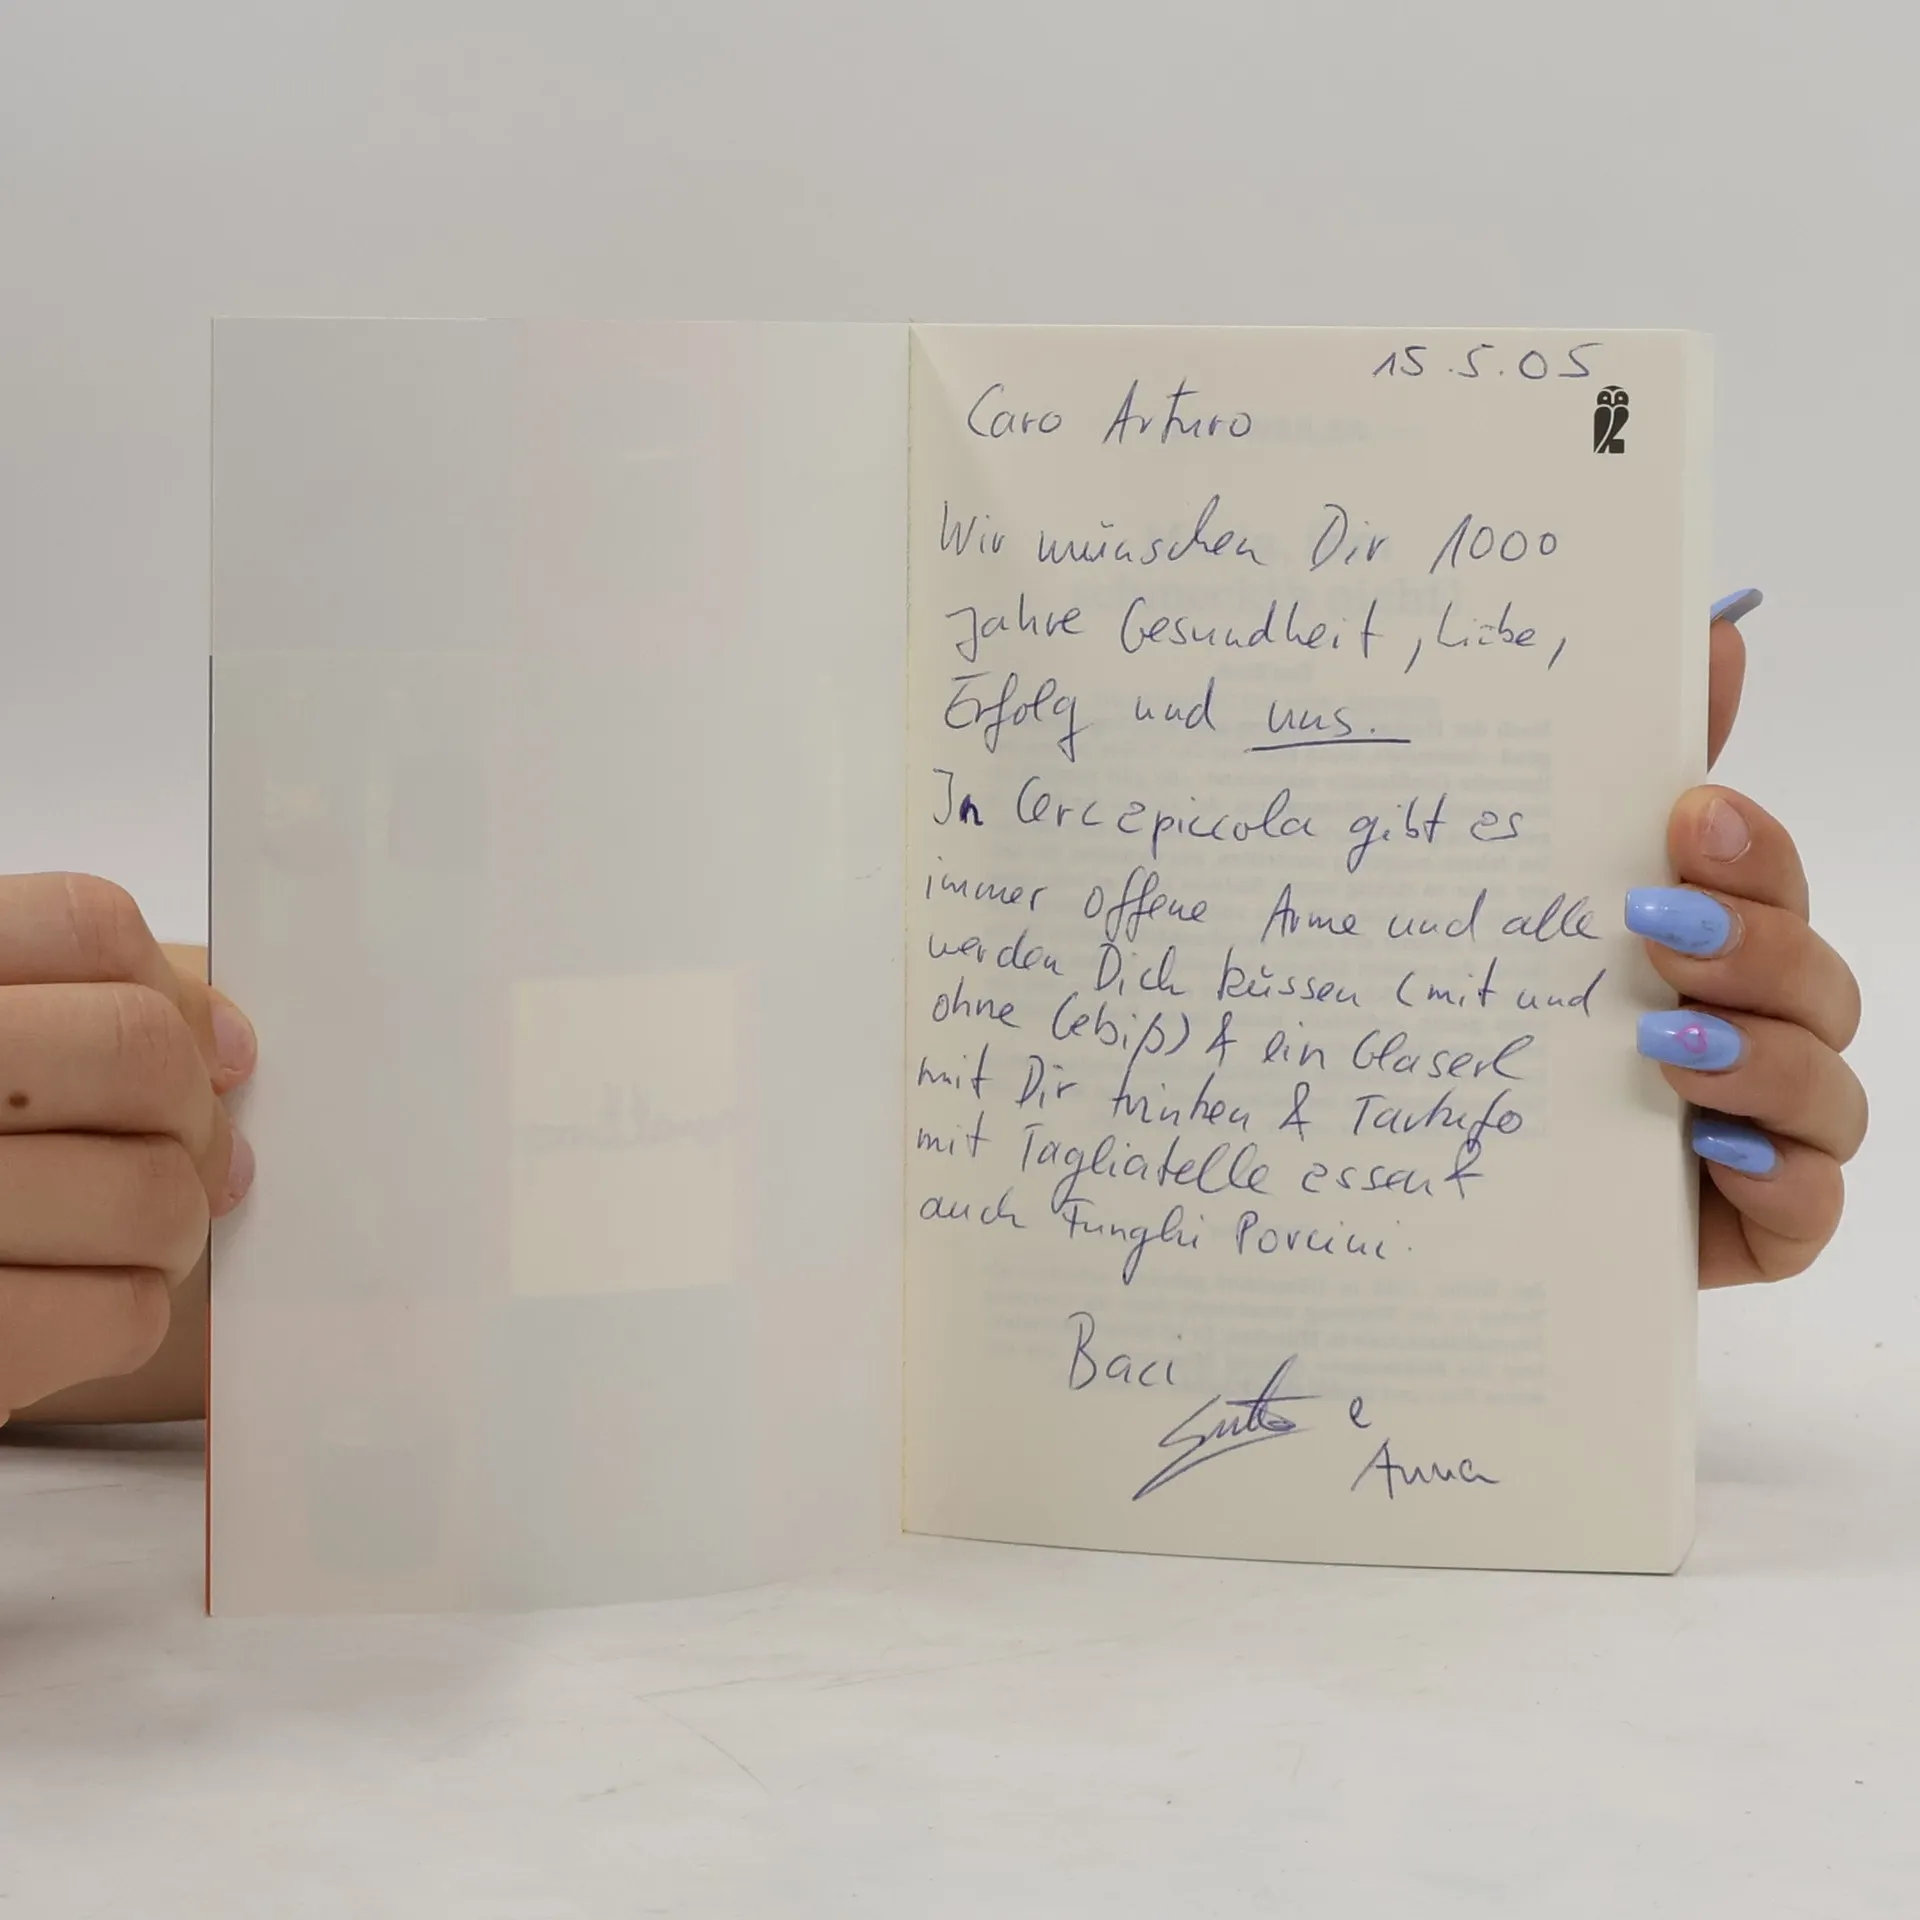 15.5.05
Caro Arturo
Wir wünschen Dir 1000
Jahre Gesundheit, Liebe,
Erfolg und uns.
In Cercepiccola gibt es
immer offene Arme und alle
werden Dich küssen (mit und
ohne Gebiß) & ein Glaserl
mit Dir trinken & Tartufo
mit Tagliatelle essen &
auch Funghi Porcini.
Baci
e
Anna